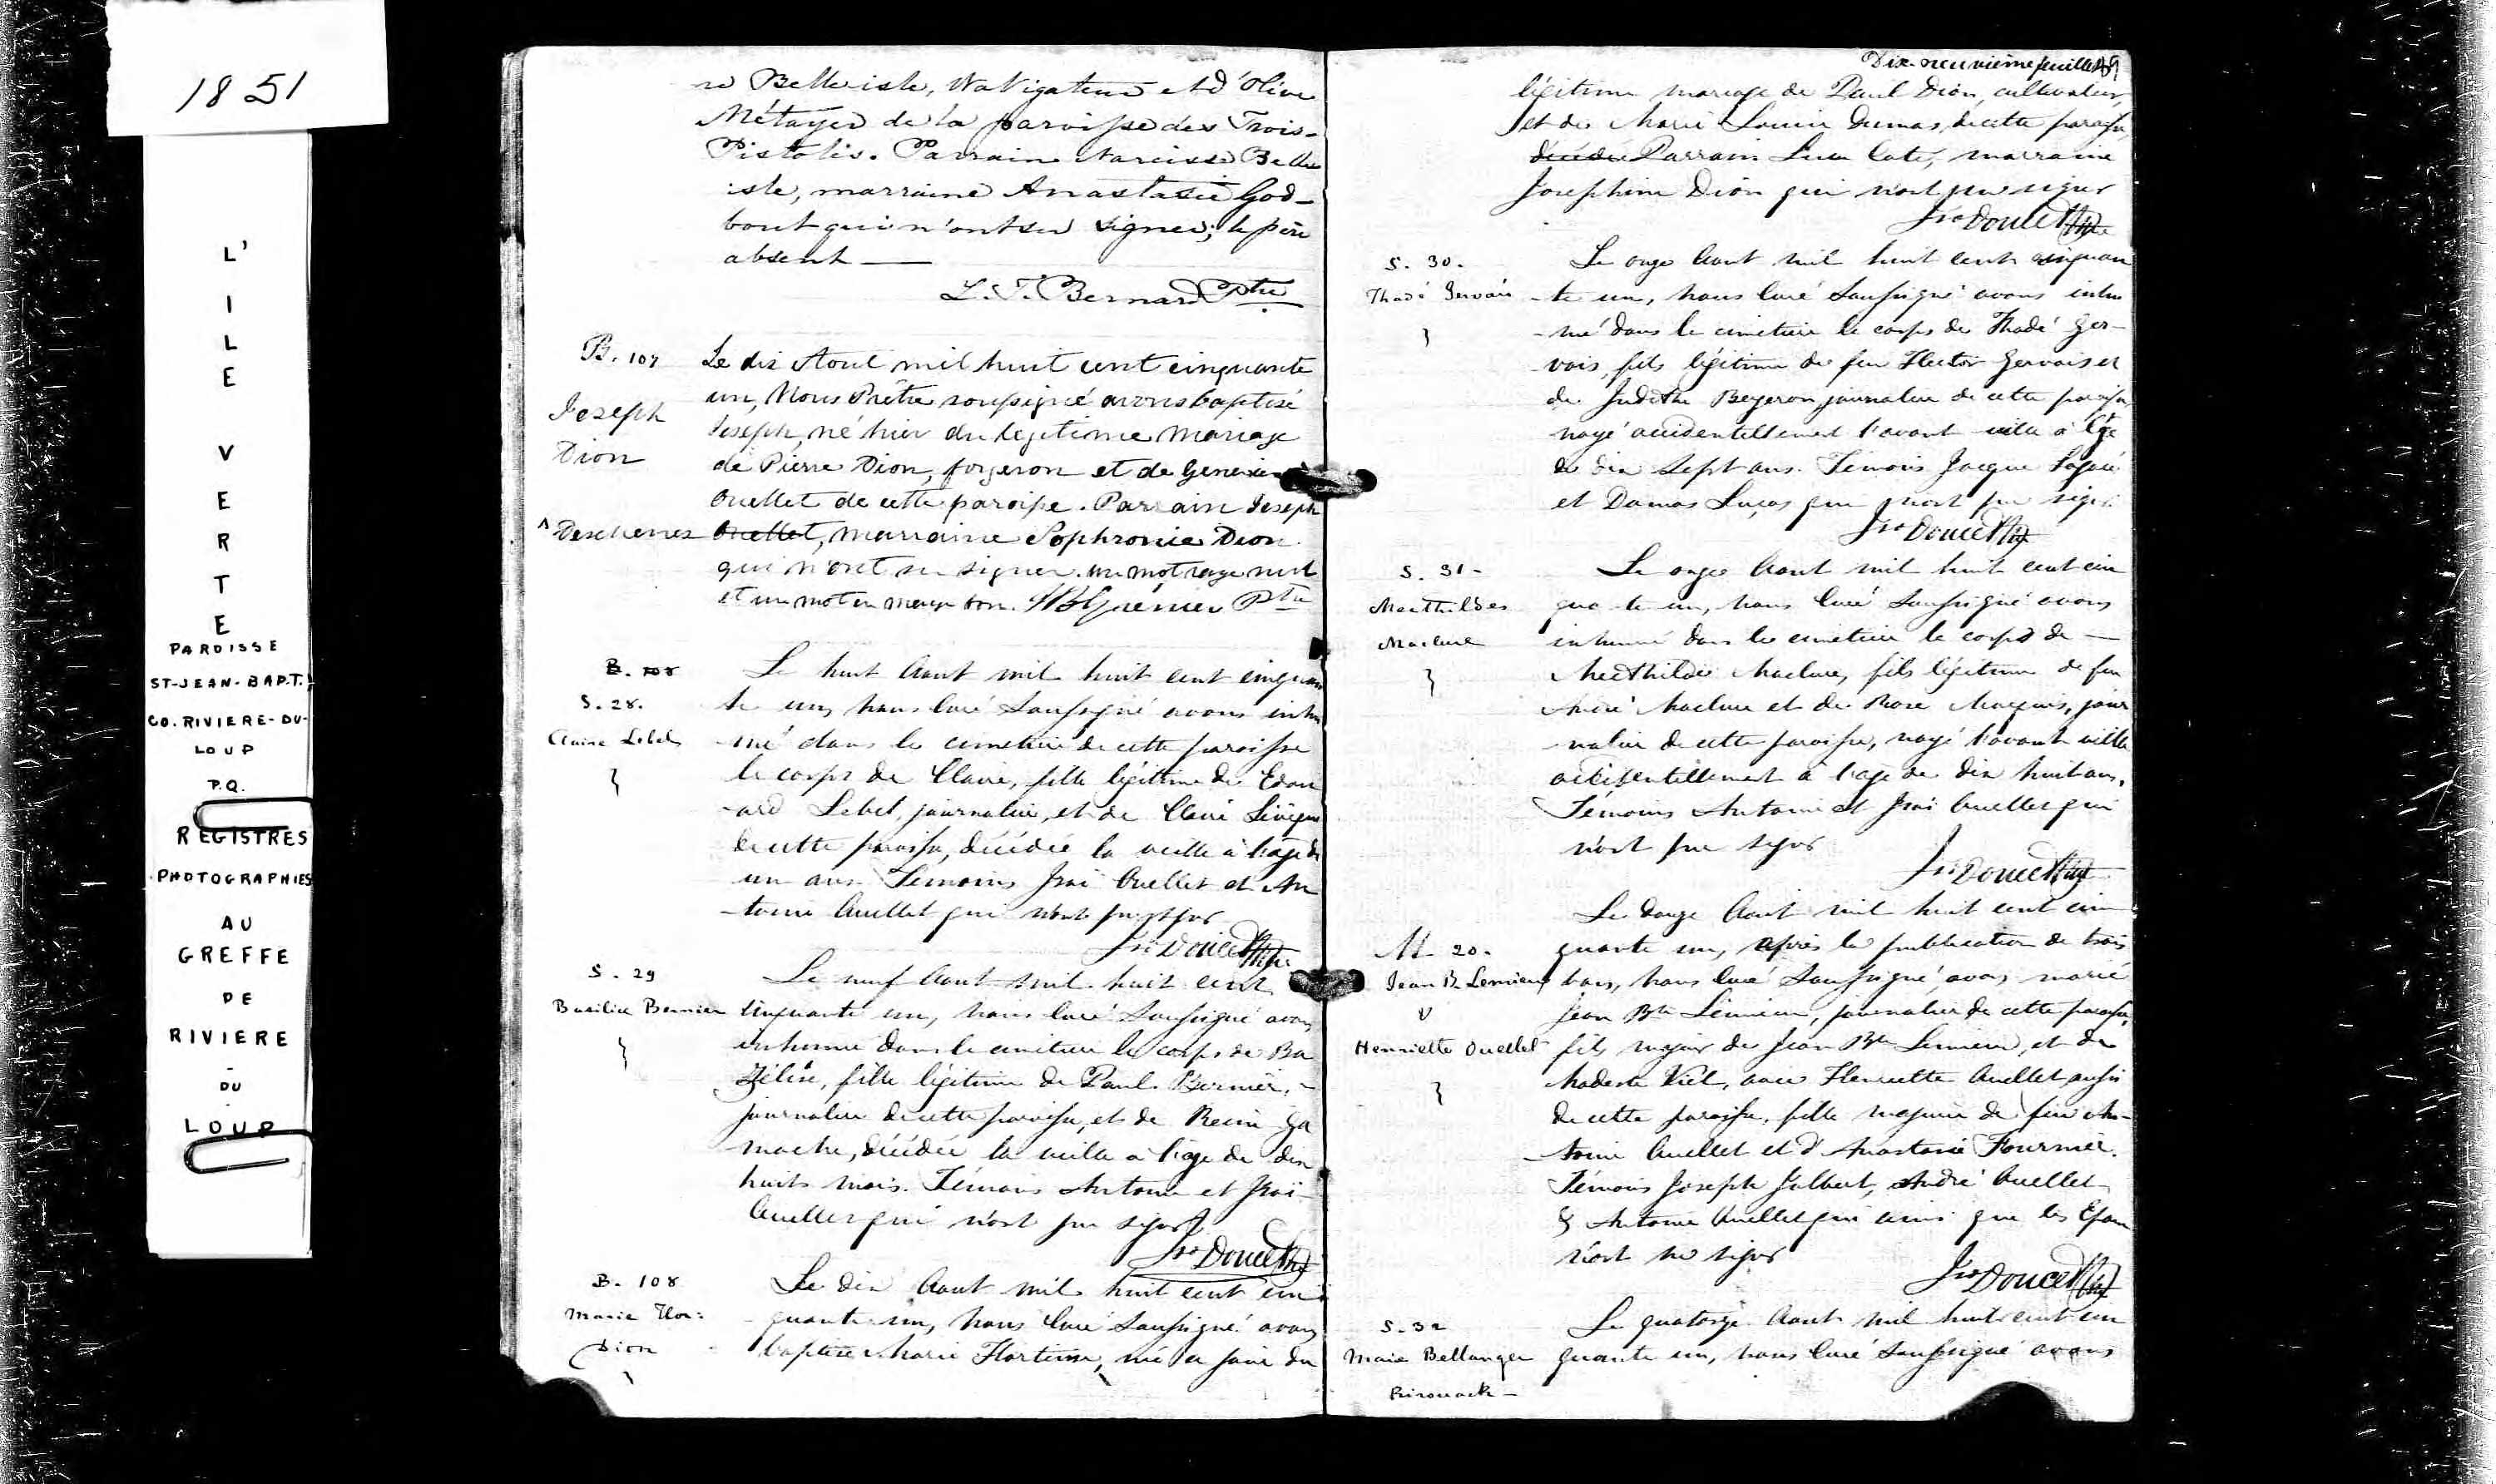 1851
L'
I
L
E
V
E
R
T
E
PAROISSE
ST-JEAN-BAPT.
CO. RIVIERE-DU-
LOUP
P.Q.
REGISTRES
PHOTOGRAPHIES
AU
GREFFE
DE
RIVIERE
-
DU
-
LOUP
re Belleisle, Navigateur et d'Olive
Métayer de la paroisse des Trois-
Pistoles. Parrain Narcisse Belle
isle, marraine Anastasie God-
bout qui n'ont su signer; le père
absent —
L. T. Bernard Ptre
B. 107
Joseph
Dion
Le dix Aout mil huit cent cinquante
un, Nous Prêtre soussigné avons baptisé
Joseph, né hier du légitime mariage
de Pierre Dion, forgeron et de Genevieve
Ouellet de cette paroisse. Parrain Joseph
^ Deschenes Ouellet, marraine Sophronie Dion
qui n'ont su signer. un mot rayé nul
et un mot en marge bon. Grenier Ptre
B. 108
S. 28.
Claire Lebel
Le huit Aout mil huit cent cinquan
te un, nous Curé Soussigné avons inhu
mé dans le cimetiere de cette paroisse
le corps de Claire, fille légitime de Edou
-ard Lebel, journalier, et de Claire Lévèque
de cette paroisse, décédée la veille à l'age de
un ans. Temoins Ouellet et An
-toine Ouellet qui n'ont pu signer
Jno Doucet Ptre
S. 29
Basilice Bernier
Le neuf Aout mil huit cent
cinquante un, nous Curé Soussigné avons
inhumé dans le cimetiere le corps de Ba
zélise, fille légitime de Paul Bernier, -
journalier de cette paroisse, et de Reine Ga
mache, décédée la veille a l'age de dix
huits mois. Témoins Antoine et
Ouellet qui n'ont pu signer
Jno Doucet Ptre
B. 108
Marie Flor:
Dion
Le dix Aout mil huit cent cin
quante un, nous Curé Soussigné avons
baptisé Marie Hortense, né ce jour du
Dix-neuvième feuillet 19
légitime mariage de Paul Dion, cultivateur,
et de Marie Louise Dumas, de cette paroisse,
décédée Parrain Luc Coté, marraine
Josephine Dion qui n'ont pu signer
Jno Doucet Ptre
S. 30.
Thadé Gervais
Le onze Aout mil huit cent cinquan
-te un, nous Curé Soussigné avons inhu
-mé dans le cimetiere le corps de Thadé Ger-
vais, fils légitime de feu Hector Gervais et
de Judithe Bergeron, journalier de cette paroisse,
noyé accidentellement l'avant veille à l'age
de dix sept ans. Témoins Jacque
et Damas Lucas qui n'ont pu signer.
Jno Doucet Ptre
S. 31-
Macthildes
Maclure
Le onze Aout mil huit cent cin
qua-te un, nous Curé Soussigné avons
inhumé dans le cimetiere le corps de —
Macthildes Maclure, fils légitime de feu
André Maclure et de Rose Marquis, jour
-nalier de cette paroisse, noyé l'avant veille
accidentellement à l'age de dix huit ans.
Témoins Antoine et Ouellet qui
n'ont pu signer
Jno Doucet Ptre
M. 20.
Jean B. Lemieux
V
Henriette Ouellet
Le douze Aout mil huit cent cin
quante un, après la publication de trois
bans, nous Curé Soussigné avons marié
Jean Bte Lemieux, journalier de cette paroisse,
fils majeur de Jean Bte Lemieux, et de
Modeste Viel, avec Henriette Ouellet aussi
de cette paroisse, fille majeure de feu An-
toine Ouellet et d'Anastasie Fournier.
Témoins Joseph Jalbert, André Ouellet
& Antoine Ouellet qui ainsi que les Epoux
n'ont su signer
Jno Doucet Ptre
S. 32
Marie Bellanger
Le quatorze Aout mil huit cent cin
quante un, nous Curé Soussigné avons